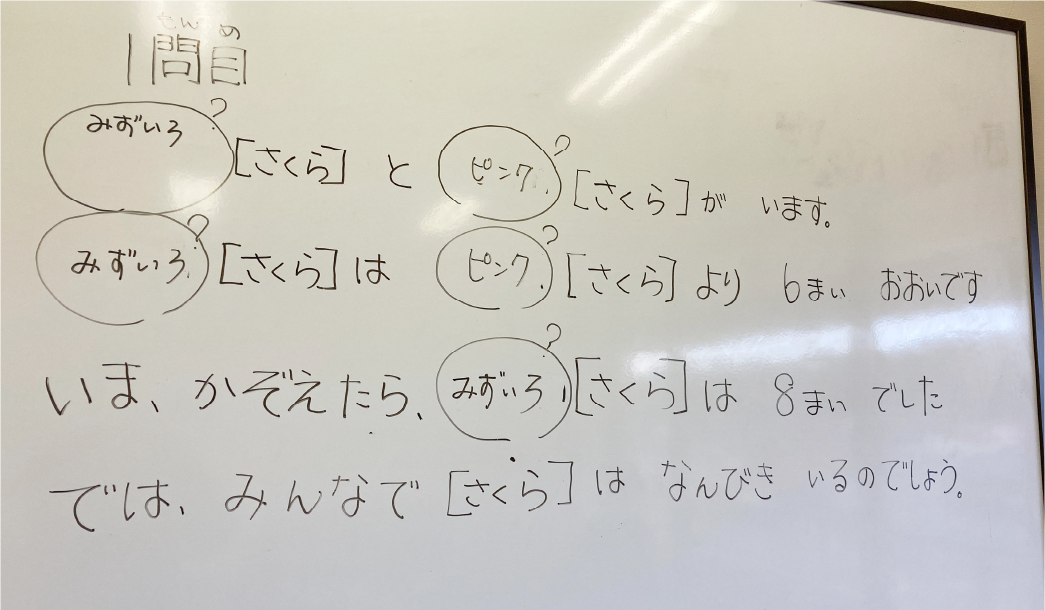 もんめ
1問目
みずいろ? [さくら] と ピンク? [さくら] が います。
みずいろ? [さくら] は ピンク? [さくら] より 6まい おおいです
いま、かぞえたら、みずいろ? [さくら] は 8まい でした
では、みんなで [さくら] は なんびき いるのでしょう。